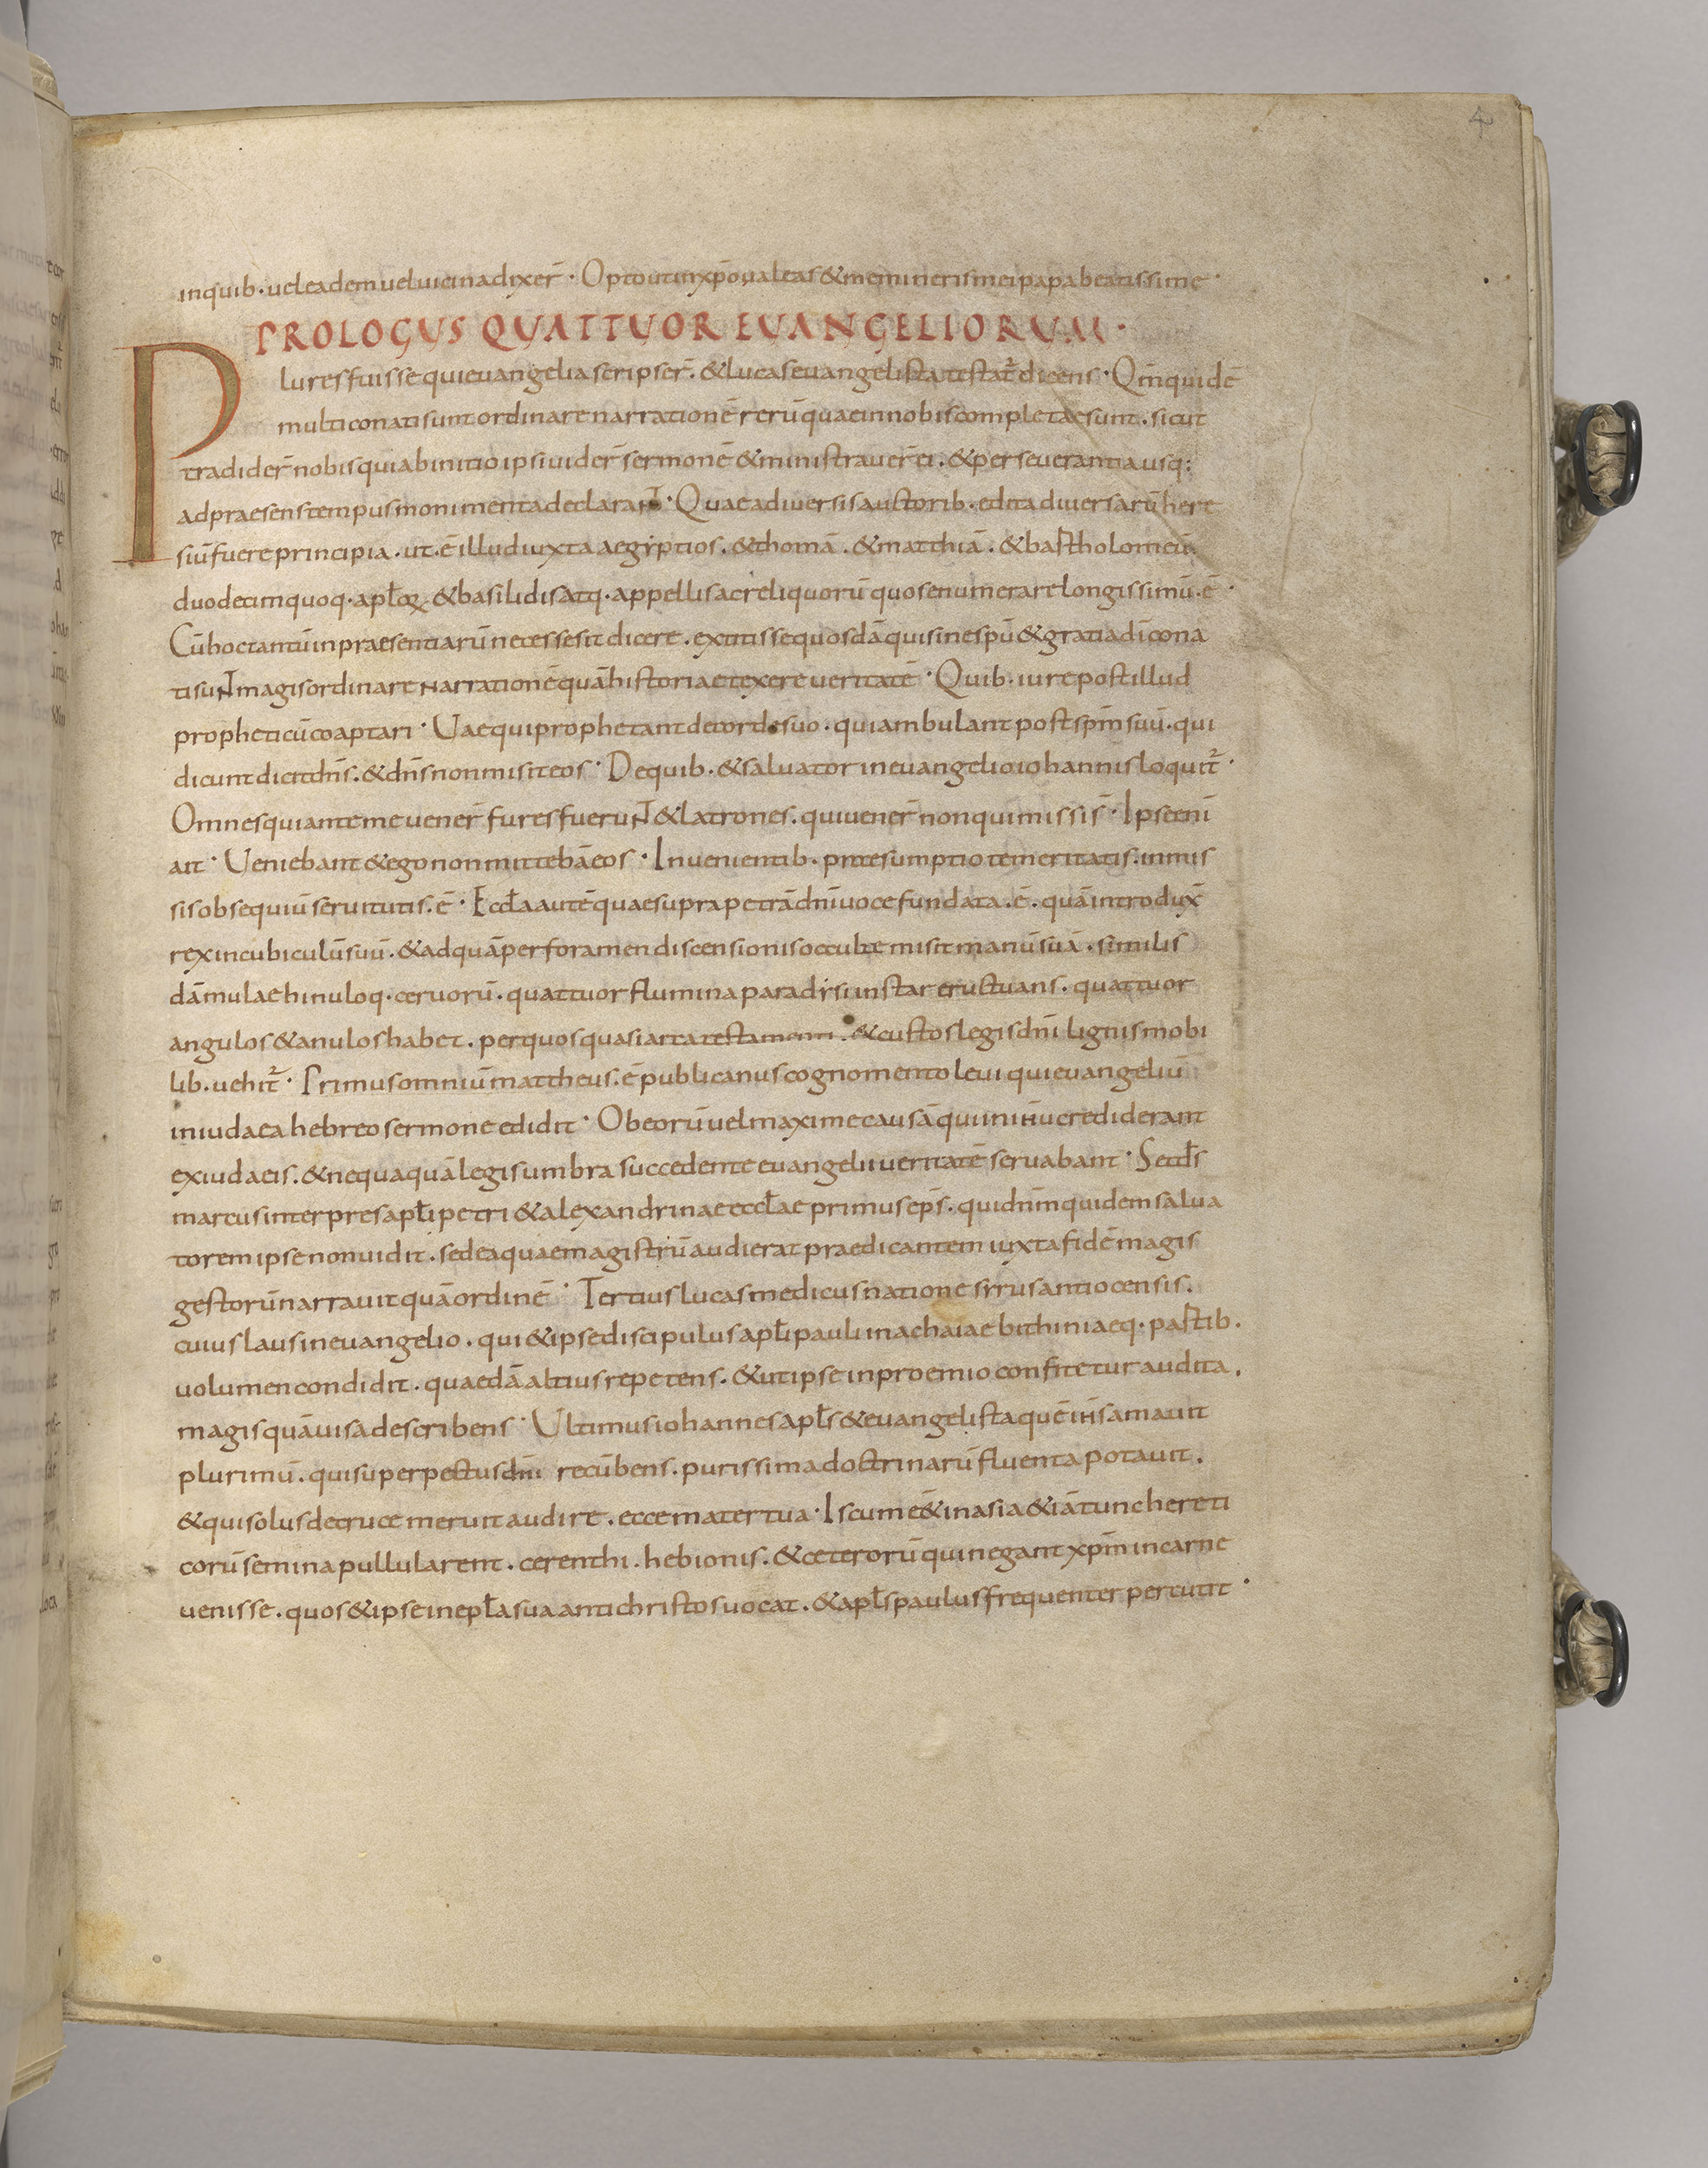 4
inquib· vel eadem vel vicina dixer̄· Opto ut in xp̄o valeas & memineris mei papa beatissime·
PROLOGUS QUATTUOR EUANGELIORUM·
Plures fuisse qui euangelia scripser̄· & lucas euangelista testat̄ dicens· Qm̄ quidē
multi conati sunt ordinare narrationē rerū quae in nobis completae sunt· sicut
tradider̄ nobis qui ab initio ipsi uider̄ sermonē & ministrauer̄ ei· & perseuerantia usq;
ad praesens tempus monimenta declarant· Quae a diuersis auctorib· edita diuersarū here
siū fuere principia· ut· ē illud iuxta aegyptios· & thomā· & matthiā· & bartholomeū·
duodecim quoq· apl̄oꝝ & basilidis atq· appellis ac reliquorū quos enumerare longissimū· ē·
Cū hoc tantū in praesentiarū necesse sit dicere· extitisse quosdā qui sine sp̄u & gratia dī cona
ti sunt magis ordinare narrationē quā historiae texere ueritatē· Quib· iure post illud
propheticū coaptari· Uae qui prophetant de corde suo· qui ambulant post sp̄m suū· qui
dicunt dicit dn̄s· & dn̄s non misit eos· De quib· & saluator in euangelio iohannis loquit̄·
Omnes qui ante me uener̄ fures fuerunt & latrones· qui uener̄ non qui missi s̄· Ipse eni̅
ait· Ueniebant & ego non mittebā eos· In uenientib· praesumptio temeritatis· in mis
sis obsequiū seruitutis· ē· Eccl̄a autē quae supra petrā dn̄i uoce fundata· ē· quā introdux̄
rex in cubiculū suū· & ad quā per foramen discensionis occulte misit manū suā· similis
dāmulae hinuloq· ceruorū· quattuor flumina paradysi instar eructuans· quattuor
angulos & anulos habet· per quos quasi arca testamenti· & custos legis dn̄i lignis mobi
lib· uehit̄· Primus omniū mattheus· ē publicanus cognomento leui qui euangeliū
in iudaea hebreo sermone edidit· Ob eorū uel maxime causā qui in ih̄u crediderant
ex iudaeis· & nequaquā legis umbra succedente euangelii ueritatē seruabant· Secd̄s
marcus interpres apl̄i petri & alexandrinae eccl̄ae primus ep̄s· qui dn̄m quidem salua
torem ipse non uidit· sed ea quae magistrū audierat praedicantem iuxta fidē magis
gestorū narrauit quā ordinē· Tertius lucas medicus natione syrus antiocensis·
cuius laus in euangelio· qui & ipse discipulus apl̄i pauli in achaiae bithiniaeq· partib·
uolumen condidit· quaedā altius repetens· & ut ipse in proemio confitetur audita·
magis quā uisa describens· Ultimus iohannes apl̄s & euangelista quē ih̄s amauit
plurimū· qui super pectus dn̄i recūbens· purissima doctrinarū fluenta potauit·
& qui solus de cruce meruit audire· ecce mater tua· Is cum eē& in asia & iā tunc hereti
corū semina pullularent· cerenthi· hebionis· & ceterorū qui negant xp̄m in carne
uenisse· quos & ipse in epl̄a sua antichristos uocat· & apl̄s paulus frequenter percutit·